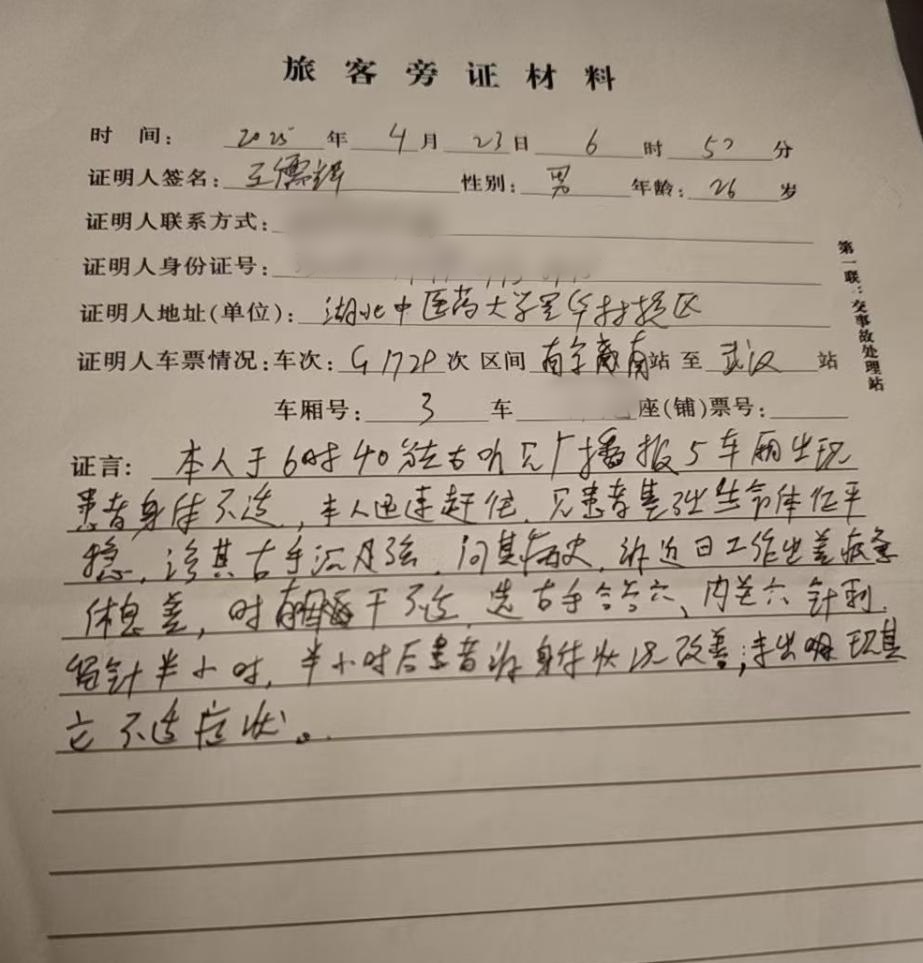 旅客旁证材料
时 间： 2025 年 4 月 23 日 6 时 57 分
证明人签名： 王儒辉 性别： 男 年龄： 26 岁
证明人联系方式：
证明人身份证号：
证明人地址(单位)： 湖北中医药大学 校区
证明人车票情况：车次： G1728 次 区间 南 站 至 武汉 站
车厢号： 3 车 座(铺)票号：
证言： 本人于6时40分左右听见广播报5车厢出现
患者身体不适，本人迅速赶往，见患者基础生命体征平
稳，诊其右手沉及弦，问其病史，诉近日工作出差疲惫
休息差，时有 干不适，选右手合谷穴、内关穴针刺，
留针半小时，半小时后患者诉身体状况改善；未出现其
它不适症状。
第一联：交事故处理站